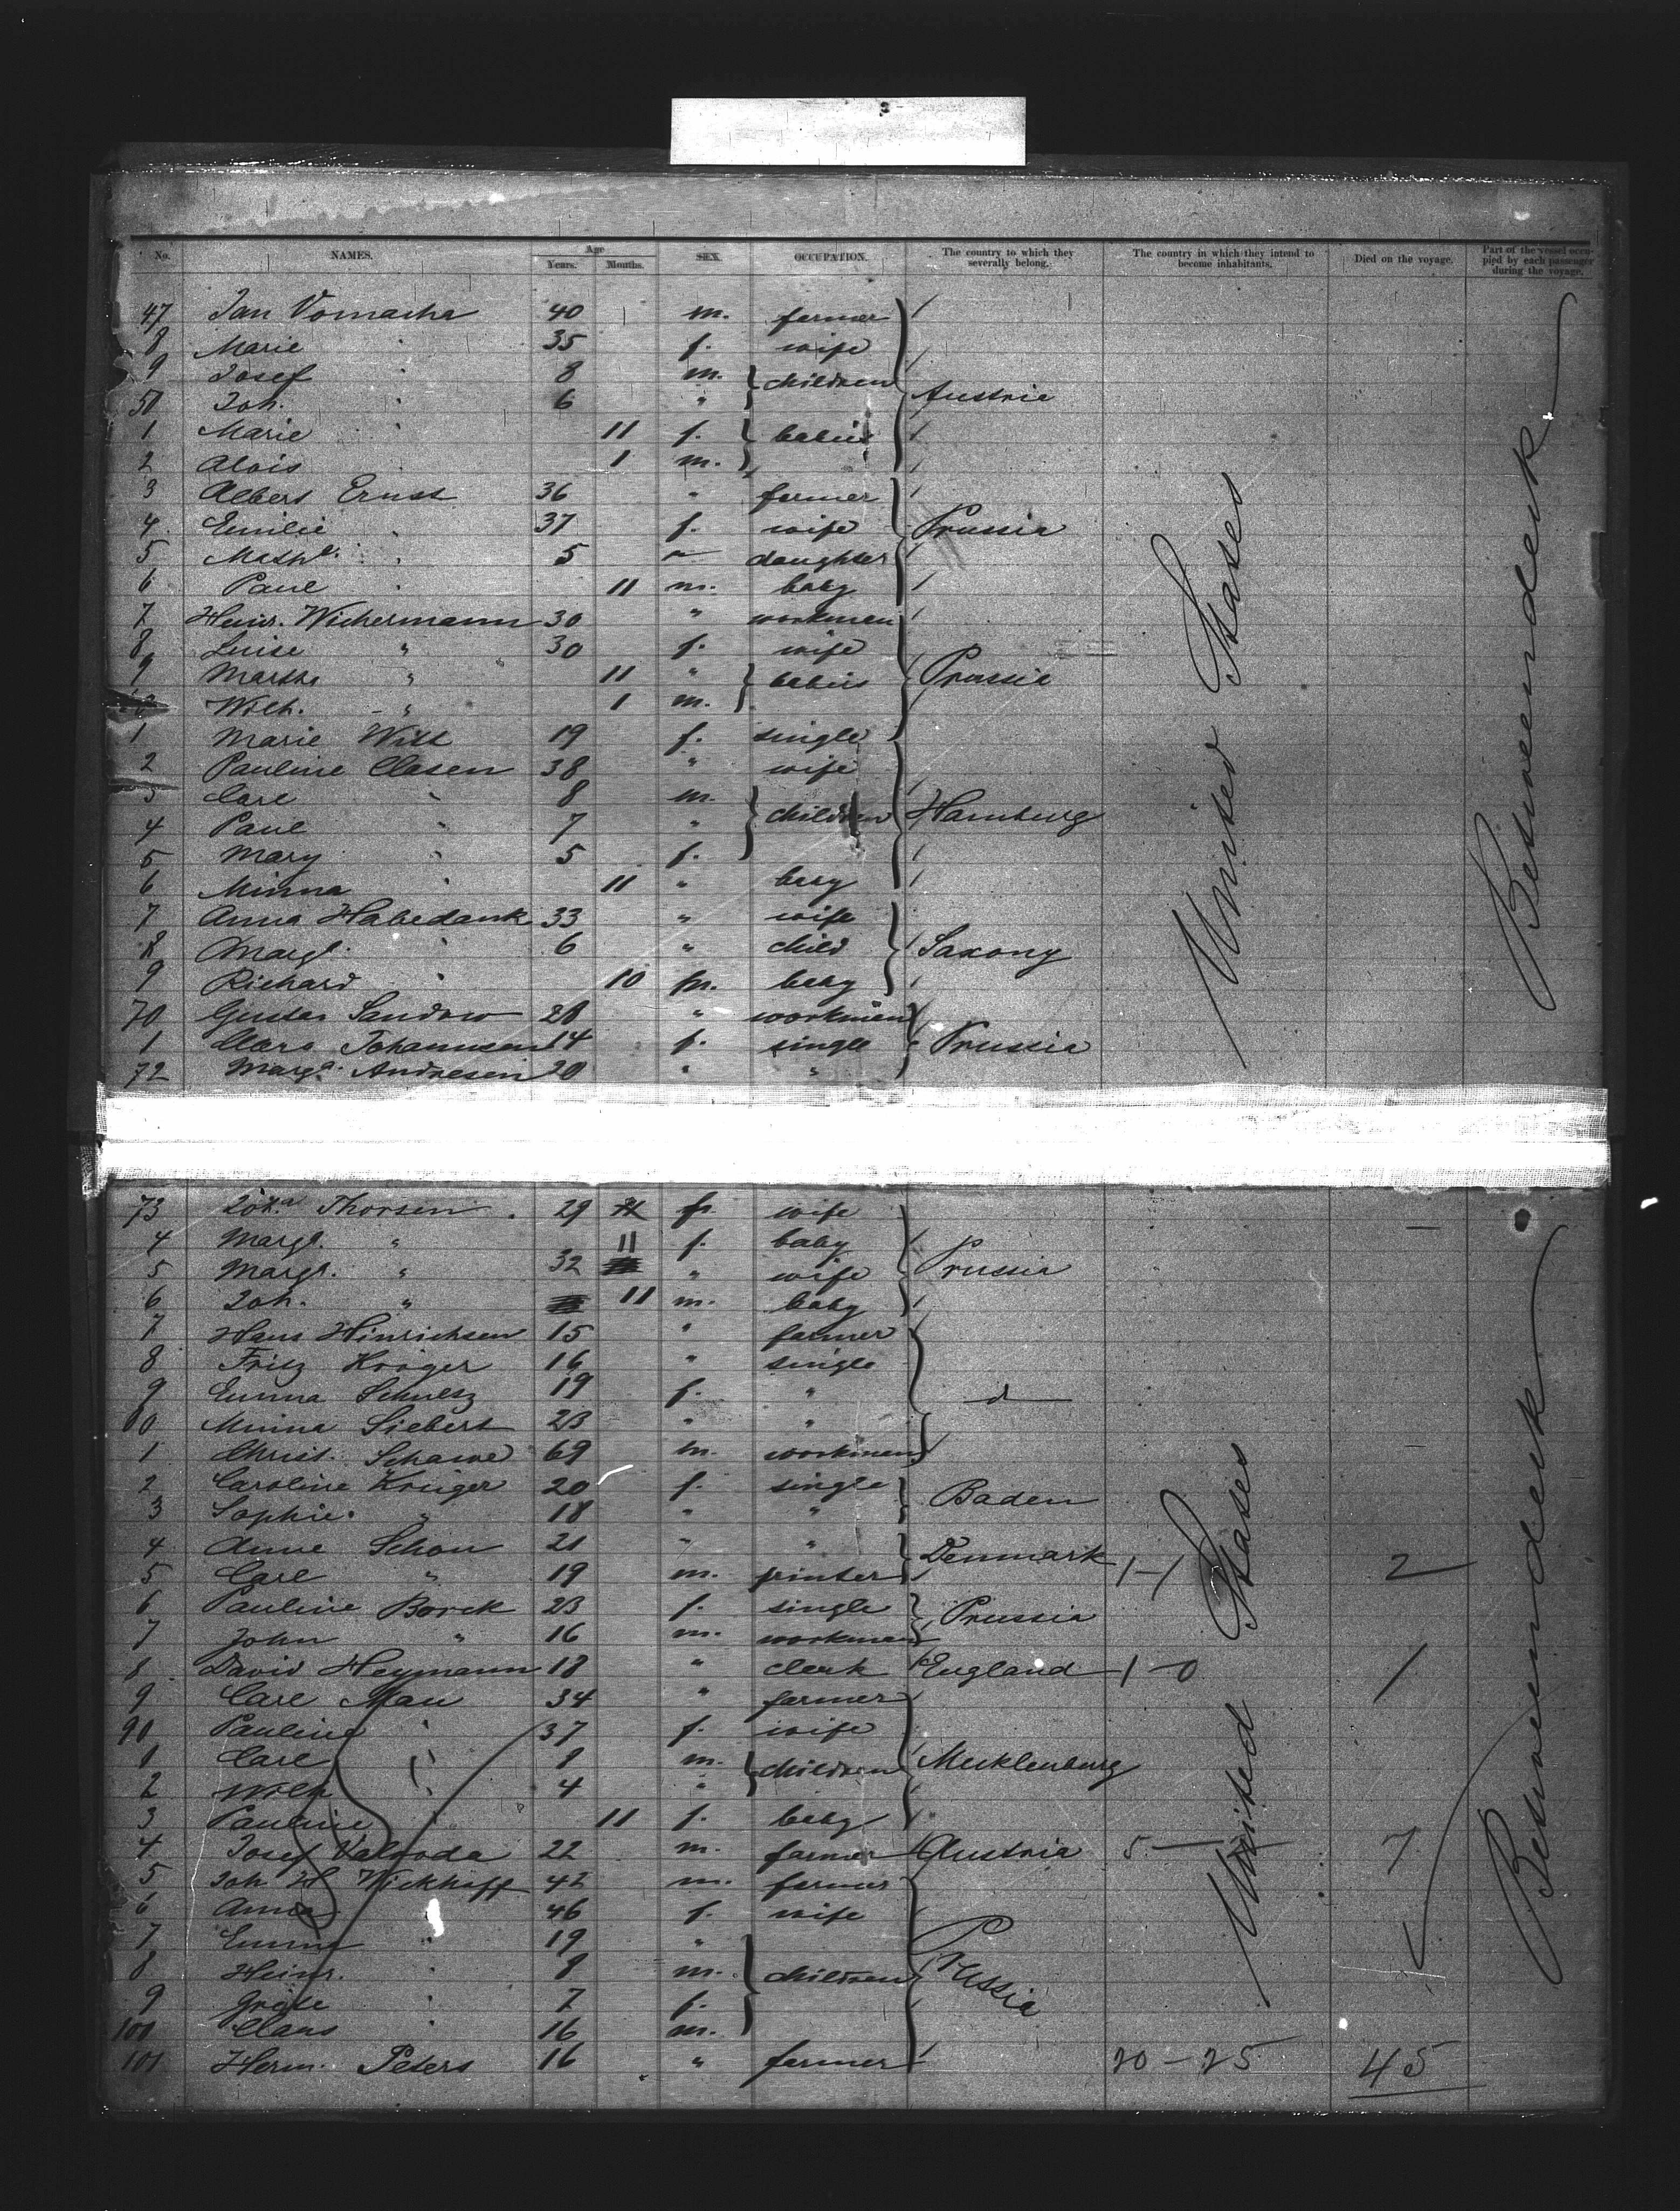 No. NAMES. Age Years. Months. SEX. OCCUPATION. The country to which they severally belong. The country in which they intend to become inhabitants. Died on the voyage. Part of the vessel occupied by each passenger during the voyage.
47 Jan Vomasha 40 m. farmer
8 Marie " 35 f. wife
9 Josef " 8 m. children
50 Joh. " 6 " Austria
1 Marie " 11 f. babies
2 Alois " 1 m.
3 Albert Ernst 36 " farmer
4 Emilie " 37 f. wife Prussia
5 Mathe. " 5 " daughter
6 Paul " 11 m. baby
7 Heinr. Wichermann 30 " workman
8 Luise " 30 f. wife
9 Martha " 11 " babies Prussia
Wilh. " 1 m.
1 Marie Witt 19 f. single
2 Pauline Clasen 38 " wife
3 Carl " 8 m. children Hamburg
4 Paul " 7 "
5 Mary " 5 f.
6 Minna " 11 " baby
7 Anna Habedank 33 " wife
8 Margt. " 6 " child Saxony
9 Richard " 10 m. baby
70 Gustav Sandow 28 " workman
1 Clara Johannsen 14 f. single Prussia
72 Marga. Andresen 20 " "
United States
Betweendeck
73 Joha. Thorsen 29 f. wife
4 Margt. " 11 f. baby Prussia
5 Margt. " 32 " wife
6 Joh. " 11 m. baby
7 Hans Hinrichsen 15 " farmer
8 Fritz Kröger 16 " single
9 Emma Schulz 19 f. " d
80 Minna Siebert 23 " "
1 Christ. Schawe 69 m. workman
2 Caroline Krüger 20 f. single Baden
3 Sophie " 18 " "
4 Anne Schou 21 " " Denmark 1-1 2
5 Carl " 19 m. printer
6 Pauline Borck 23 f. single Prussia
7 John " 16 m. workman
8 David Heymann 18 " clerk England 1-0 1
9 Carl Mau 34 " farmer
90 Pauline " 37 f. wife
1 Carl " 8 m. children Mecklenburg
2 Wilh " 4 "
3 Pauline " 11 f. baby
4 Josef 22 m. farmer Austria 5 7
5 Joh H Wickhoff 42 m. farmer
6 Anna " 46 f. wife
7 Emma " 19 " Prussia
8 Heinr. " 8 m. children
9 Gräte " 7 f.
100 Claus " 16 m.
101 Herm. Peters 16 " farmer 20-25 45
United States
Betweendeck